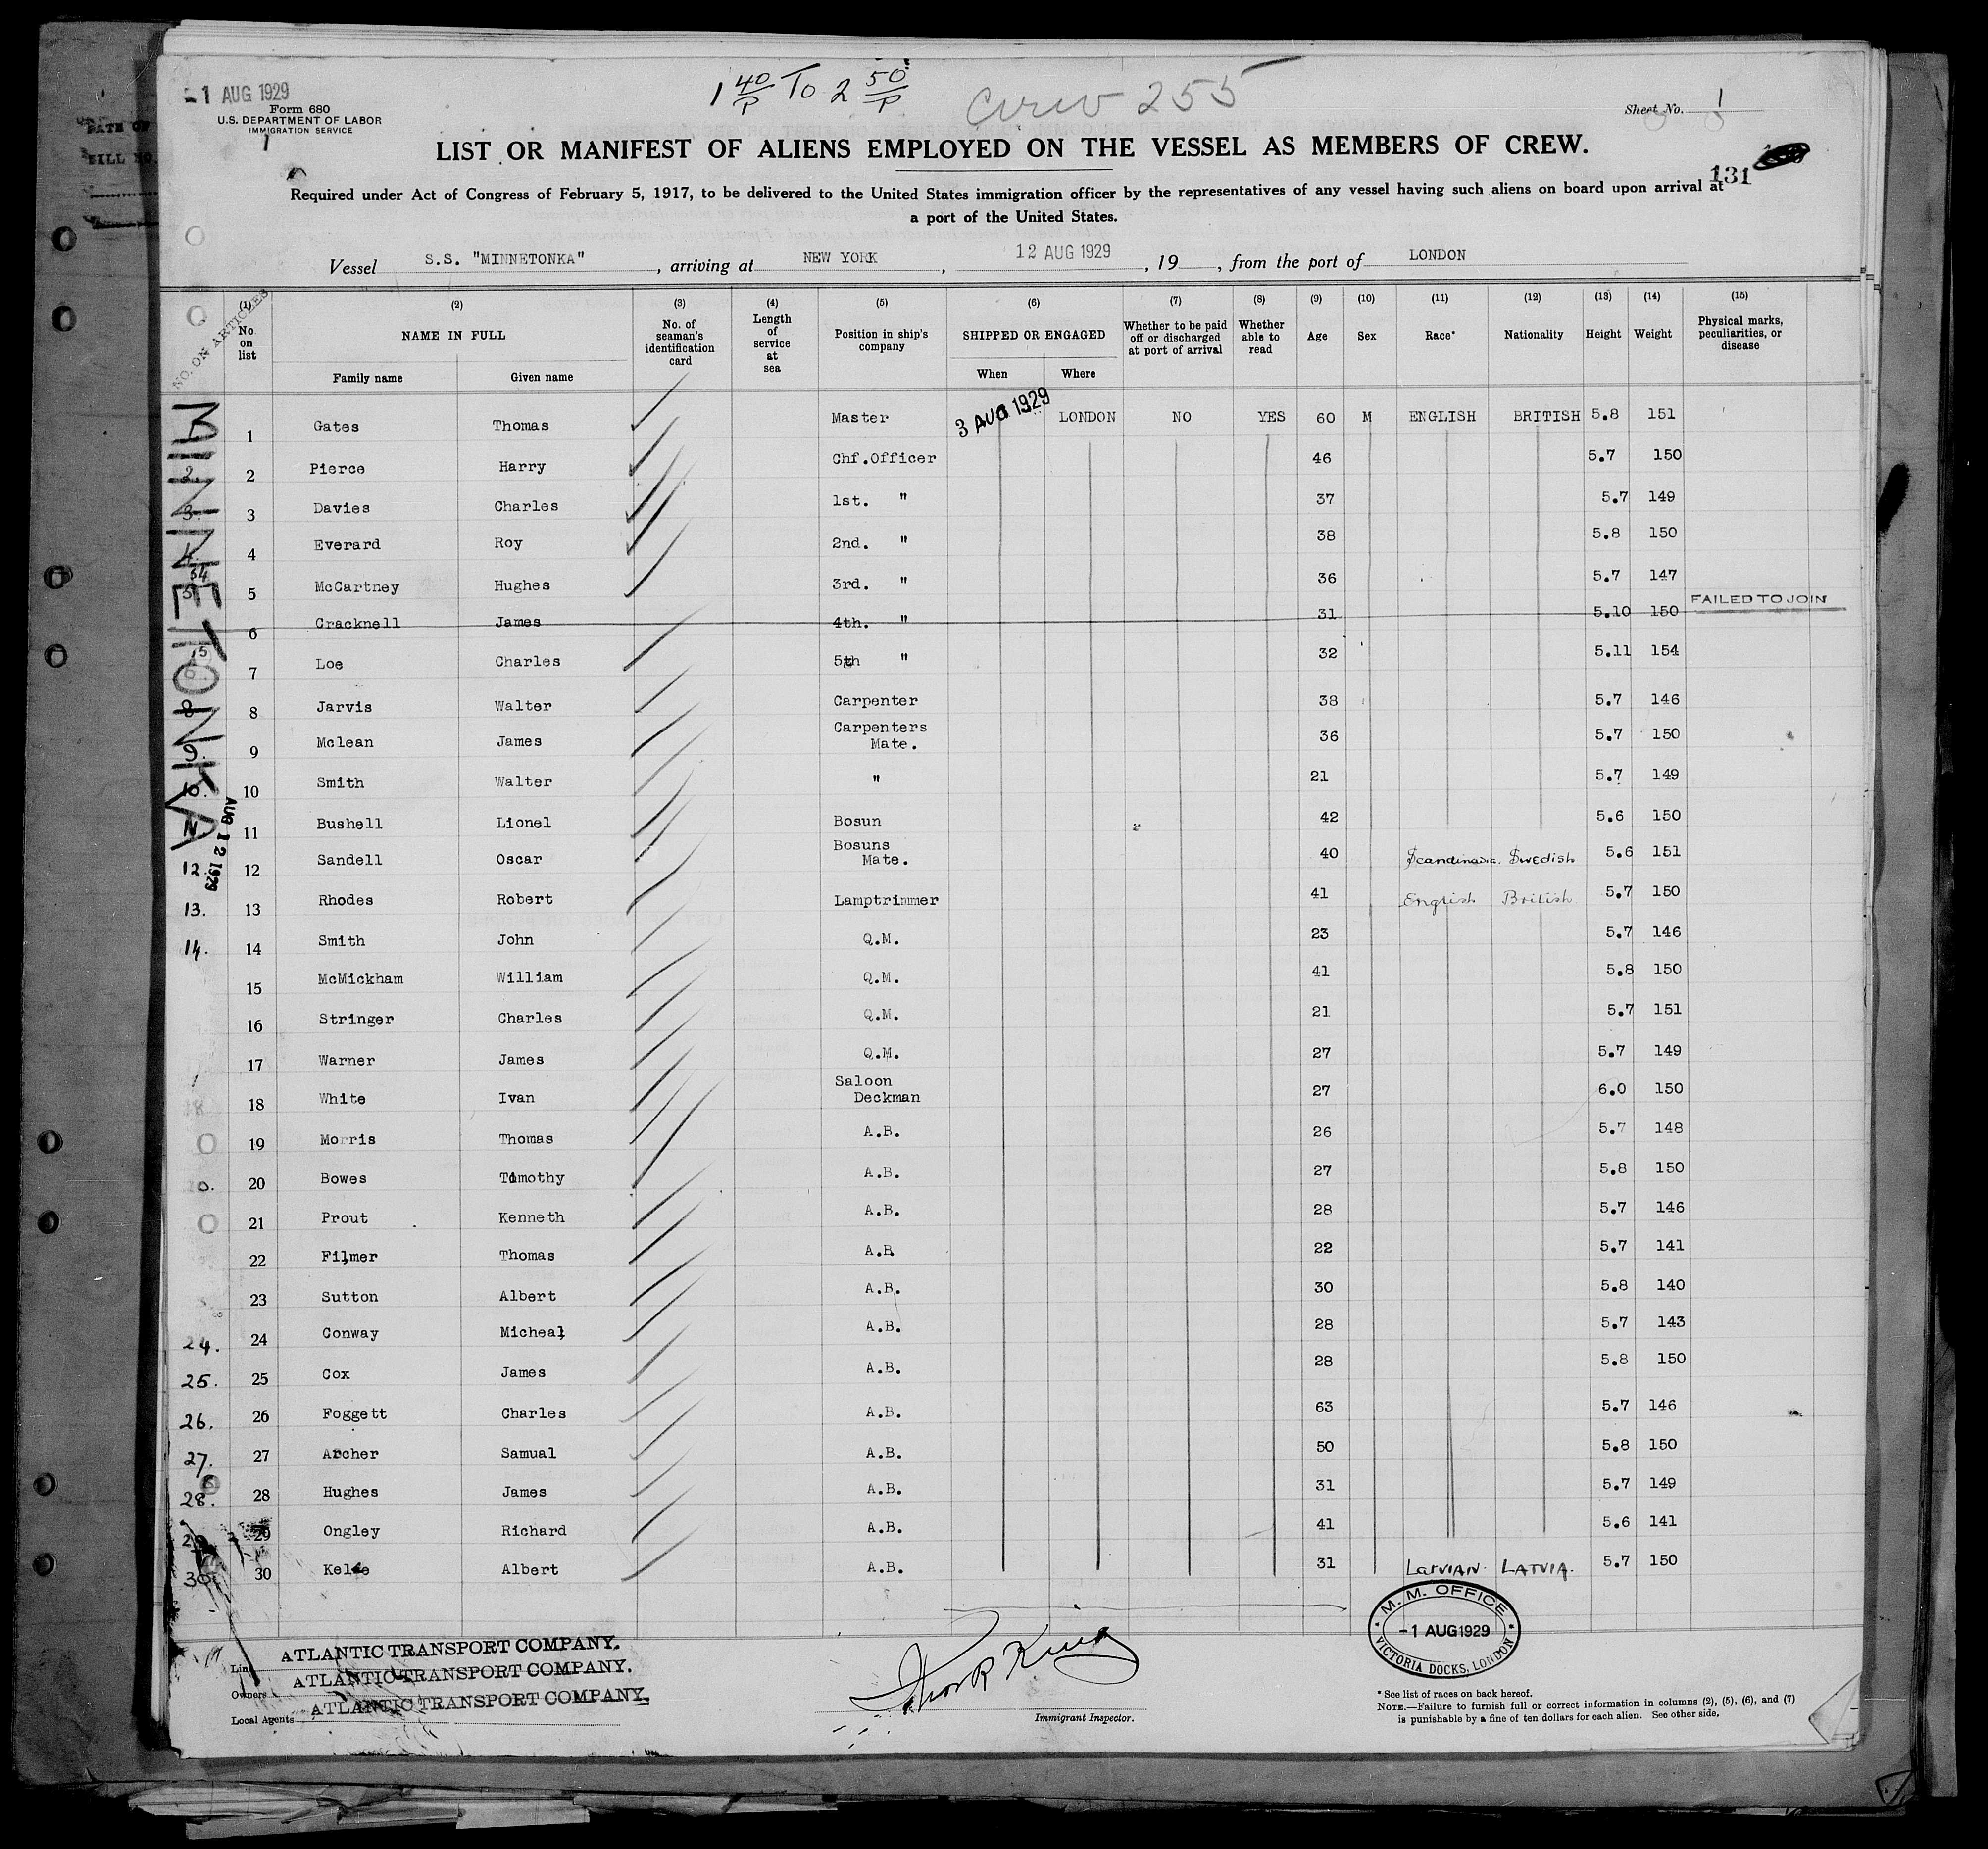 -1 AUG 1929
Form 680
U.S. DEPARTMENT OF LABOR
IMMIGRATION SERVICE
1
1 40/P To 2 50/P
Crew 255
Sheet No. 1
LIST OR MANIFEST OF ALIENS EMPLOYED ON THE VESSEL AS MEMBERS OF CREW.
131
Required under Act of Congress of February 5, 1917, to be delivered to the United States immigration officer by the representatives of any vessel having such aliens on board upon arrival at
a port of the United States.
Vessel S.S. "MINNETONKA", arriving at NEW YORK, 12 AUG 1929, 19, from the port of LONDON
NO. ON ARTICLES
(1) No. on list (2) NAME IN FULL Family name Given name (3) No. of seaman's identification card (4) Length of service at sea (5) Position in ship's company (6) SHIPPED OR ENGAGED When Where (7) Whether to be paid off or discharged at port of arrival (8) Whether able to read (9) Age (10) Sex (11) Race* (12) Nationality (13) Height (14) Weight (15) Physical marks, peculiarities, or disease
MINNETONKA
AUG 12 1929
1 Gates Thomas Master 3 AUG 1929 LONDON NO YES 60 M ENGLISH BRITISH 5.8 151
2. 2 Pierce Harry Chf.Officer 46 5.7 150
3. 3 Davies Charles 1st. " 37 5.7 149
4. 4 Everard Roy 2nd. " 38 5.8 150
5 McCartney Hughes 3rd. " 36 5.7 147
6 Cracknell James 4th. " 31 5.10 150 FAILED TO JOIN
7 Loe Charles 5th " 32 5.11 154
8 8 Jarvis Walter Carpenter 38 5.7 146
9. 9 Mclean James Carpenters Mate. 36 5.7 150
10. 10 Smith Walter " 21 5.7 149
11 Bushell Lionel Bosun 42 5.6 150
12. 12 Sandell Oscar Bosuns Mate. 40 Scandinavia. Swedish 5.6 151
13. 13 Rhodes Robert Lamptrimmer 41 English British 5.7 150
14. 14 Smith John Q.M. 23 5.7 146
15 McMickham William Q.M. 41 5.8 150
16 Stringer Charles Q.M. 21 5.7 151
17 Warner James Q.M. 27 5.7 149
18 White Ivan Saloon Deckman 27 6.0 150
19 Morris Thomas A.B. 26 5.7 148
20 Bowes Timothy A.B. 27 5.8 150
21 Prout Kenneth A.B. 28 5.7 146
22 Filmer Thomas A.B 22 5.7 141
23 Sutton Albert A.B. 30 5.8 140
24. 24 Conway Micheal A.B. 28 5.7 143
25. 25 Cox James A.B. 28 5.8 150
26. 26 Foggett Charles A.B. 63 5.7 146
27. 27 Archer Samual A.B. 50 5.8 150
28. 28 Hughes James A.B. 31 5.7 149
29 29 Ongley Richard A.B. 41 5.6 141
30 30 Kelie Albert A.B. 31 LATVIAN LATVIA. 5.7 150
M. M. OFFICE
-1 AUG 1929
VICTORIA DOCKS, LONDON
Line ATLANTIC TRANSPORT COMPANY.
Owners ATLANTIC TRANSPORT COMPANY.
Local Agents ATLANTIC TRANSPORT COMPANY.
King
Immigrant Inspector.
* See list of races on back hereof.
NOTE.—Failure to furnish full or correct information in columns (2), (5), (6), and (7)
is punishable by a fine of ten dollars for each alien. See other side.